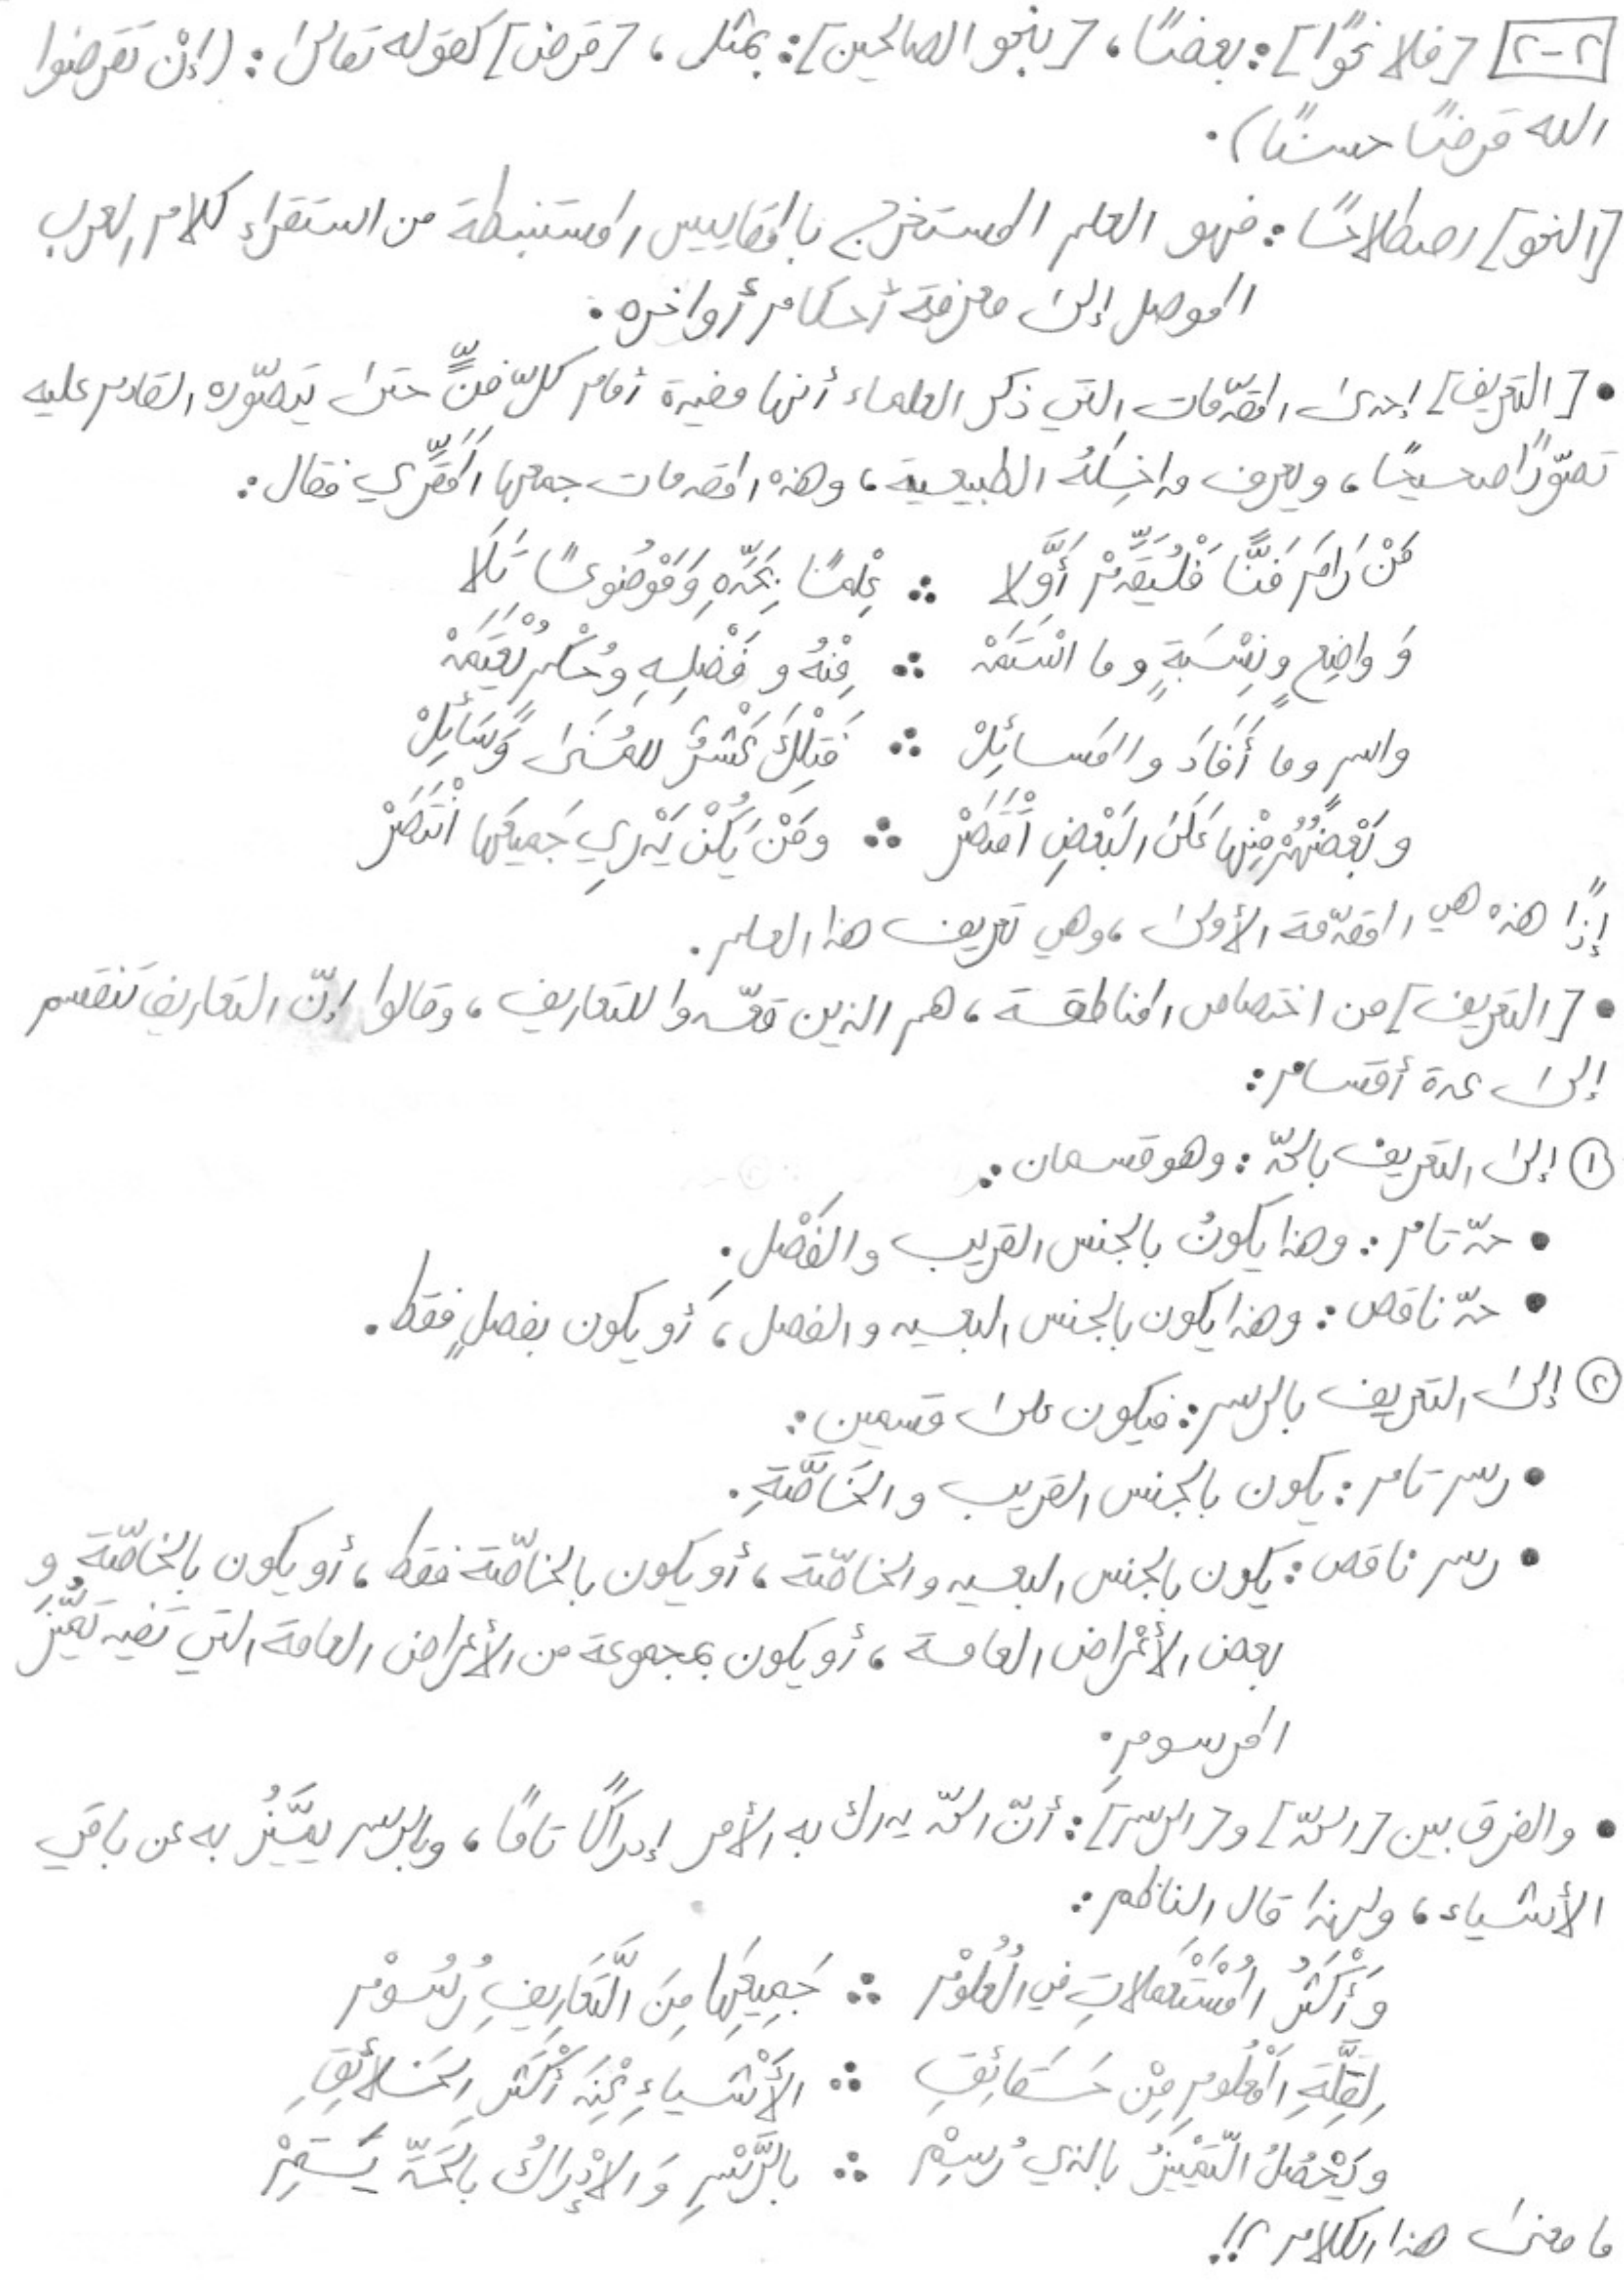 ٢-٢ [فلا نحوًا]: بعضًا، [بنحو الصالحين]: بمثل، [قرض] كقوله تعالى: (إنْ تقرضوا
الله قرضًا حسنًا).
[النحو] اصطلاحًا: فهو العلم المستخرج بالمقاييس المستنبطة من استقراء كلام العرب
الموصل إلى معرفة أحكام أواخره.
• [التعريف] إحدى المقدّمات التي ذكر العلماء أنها مفيدة أمام كلّ فنٍّ حتى يتصوّره القادم عليه
تصوّرًا صحيحًا، ويعرف مداخِلَهُ الطبيعية، وهذه المقدمات جمعها المَقَّرِي فقال:
مَنْ رَامَ فَنًّا فَلْيُقَدِّمْ أَوَّلا ∴ عِلْمًا بِحَدِّهِ وَمَوْضُوعًا تَلَا
وَواضِعٍ ونِسْبَةٍ وما اسْتَمَدْ ∴ مِنْهُ وفَضْلِهِ وحُكْمٍ يُعْتَمَدْ
واسم وما أَفَادَ والمَسائِلْ ∴ فَتِلْكَ عَشْرٌ للمُنَى وَسَائِلْ
وبَعْضُهُمْ مِنْها عَلَى البَعْضِ اقْتَصَرْ ∴ ومَنْ يَكُنْ يَدْرِي جَمِيعَها انْتَصَرْ
إذًا هذه هي المقدّمة الأولى، وهي تعريف هذا العلم.
• [التعريف] من اختصاص المناطقة، هم الذين قعّدوا للتعاريف، وقالوا إنّ التعاريف تنقسم
إلى عدة أقسام:
① إلى التعريف بالحدّ: وهو قسمان:
• حدّ تام: وهذا يكونُ بالجنس القريب والفَصْلِ.
• حدّ ناقص: وهذا يكون بالجنس البعيد والفصل، أو يكون بفصلٍ فقط.
② إلى التعريف بالرسم: فيكون على قسمين:
• رسم تام: يكون بالجنس القريب والخَاصَّةِ.
• رسم ناقص: يكون بالجنس البعيد والخاصّة، أو يكون بالخاصّة فقط، أو يكون بالخاصّة و
بعض الأعْراض العامة، أو يكون بمجموعة من الأعراض العامة التي تفيد تَمَيُّزَ
المرسومِ.
• والفرق بين [الحدّ] و[الرسم]: أنّ الحدّ يدرك به الأمر إدراكًا تامًا، وبالرسم يميَّزُ به عن باقي
الأشياء، ولهذا قال الناظم:
وَأَكْثَرُ المُسْتَعْمَلاتِ في العُلُوْمْ ∴ جَمِيعِهَا مِنَ التَّعَارِيفِ رُسُوْمْ
لِقِلَّةِ المَعْلُومِ مِنْ حَقَائِقِ ∴ الأَشْياءِ عِنْدَ أَكْثَرِ الخَلائِقِ
ويَحْصُلُ التّمْيِيْزُ بالذي رُسِمْ ∴ بالرَّسْمِ وَالإدْراكُ بالحَدِّ يَسْتَمِرْ
ما معنى هذا الكلام؟!!